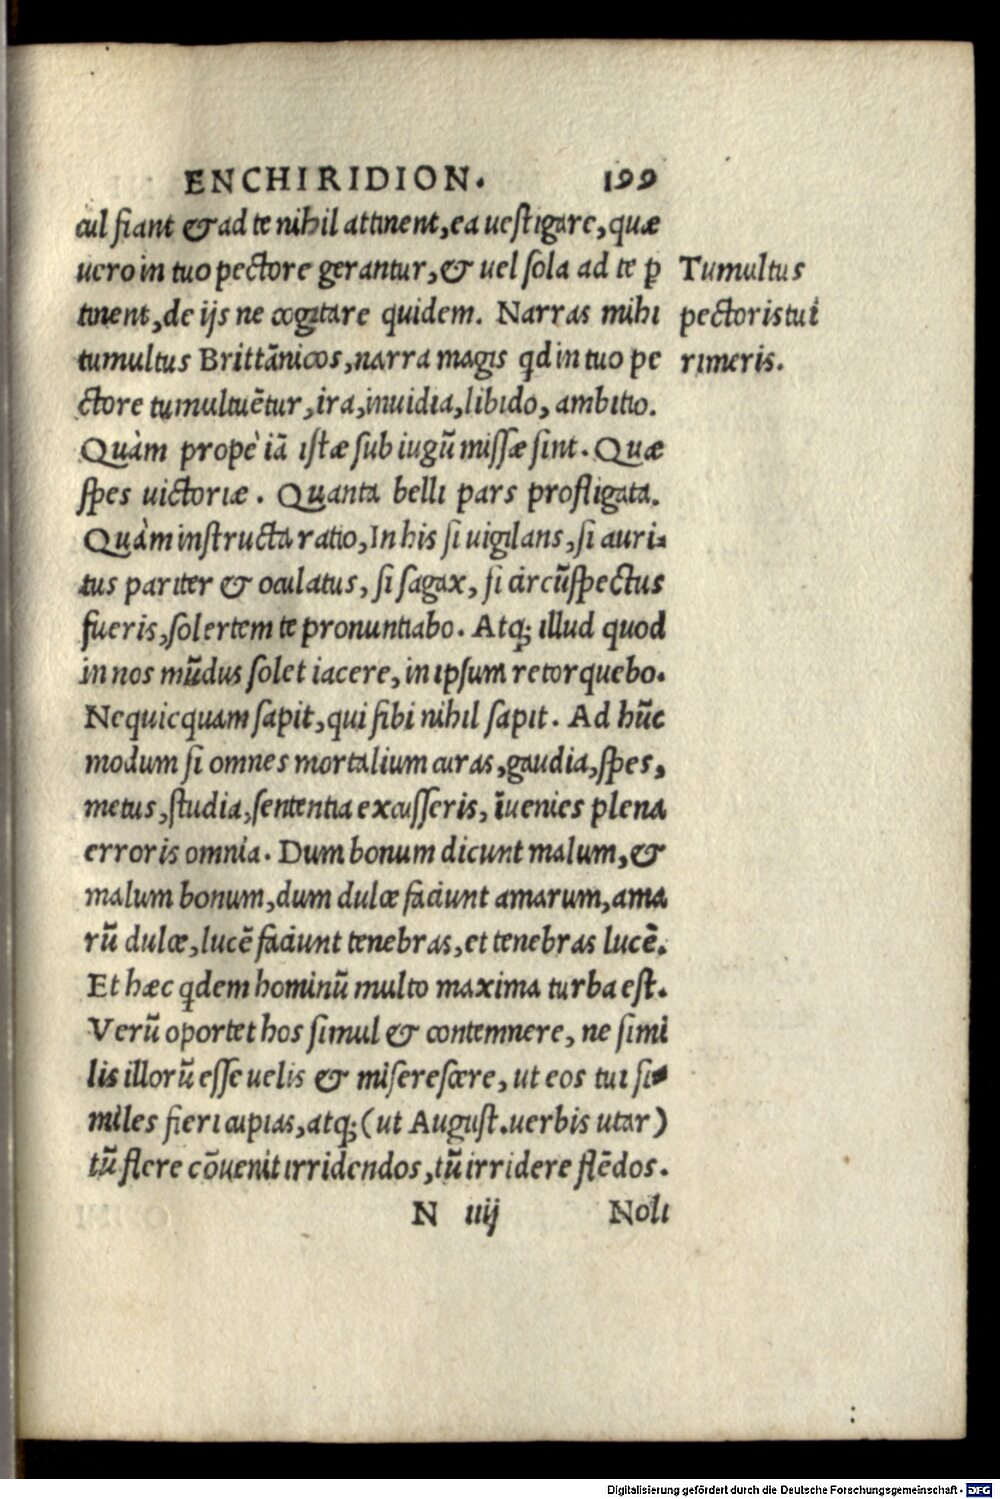 ENCHIRIDION. 199
cul fiant & ad te nihil attinent, ea uestigare, quæ
uero in tuo pectore gerantur, & uel sola ad te ꝑ
tinent, de ijs ne cogitare quidem. Narras mihi
tumultus Brittãnicos, narra magis qd in tuo pe
ctore tumultuẽtur, ira, inuidia, libido, ambitio.
Quàm propè iã istæ sub iugũ missæ sint. Quæ
spes uictoriæ. Quanta belli pars profligata.
Quàm instructa ratio, In his si uigilans, si auri-
tus pariter & oculatus, si sagax, si circũspectus
fueris, solertem te pronuntiabo. Atq; illud quod
in nos mũdus solet iacere, in ipsum retorquebo.
Nequicquam sapit, qui sibi nihil sapit. Ad hũc
modum si omnes mortalium curas, gaudia, spes,
metus, studia, sententia excusseris, ĩuenies plena
erroris omnia. Dum bonum dicunt malum, &
malum bonum, dum dulce faciunt amarum, ama
rũ dulce, lucẽ faciunt tenebras, et tenebras lucẽ.
Et hæc qdem hominũ multo maxima turba est.
Verũ oportet hos simul & contemnere, ne simi
lis illorũ esse uelis & miserescere, ut eos tui si-
miles fieri cupias, atq; (ut August. uerbis utar)
tũ flere cõuenit irridendos, tũ irridere flẽdos.
N iiij Noli
Tumultus
pectoris tui
rimeris.
Digitalisierung gefördert durch die Deutsche Forschungsgemeinschaft - DFG